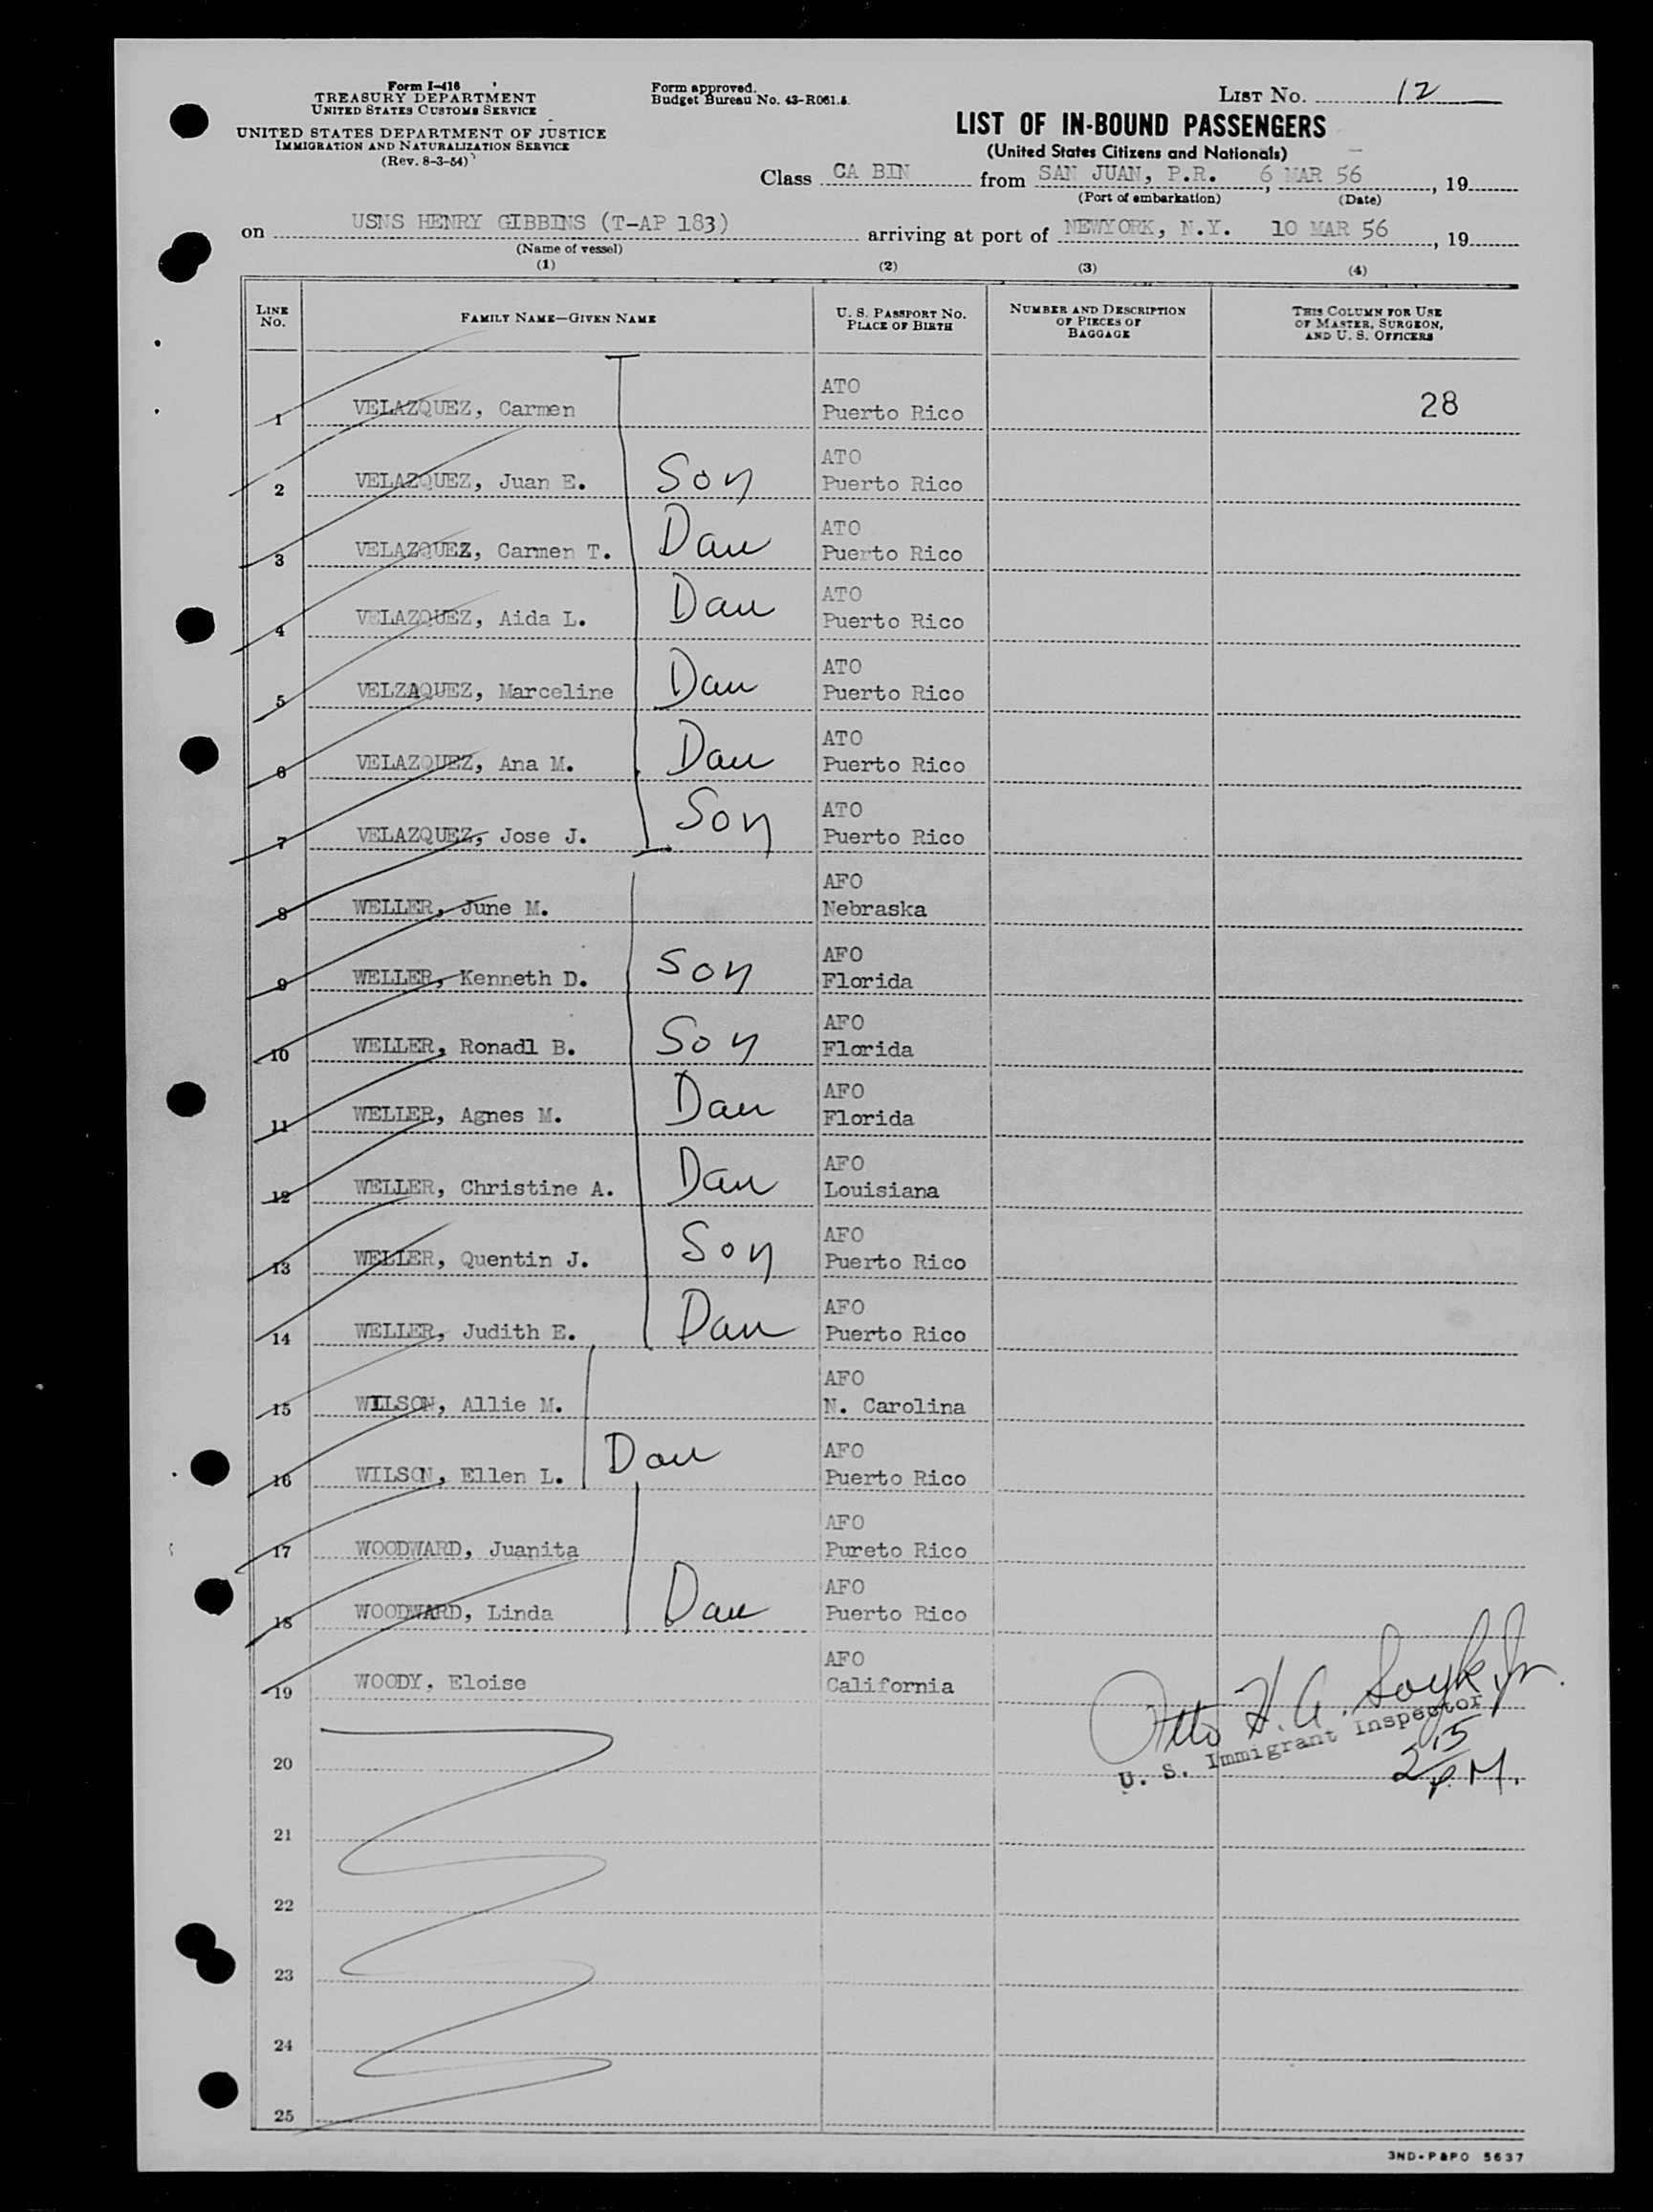 Form I-416
TREASURY DEPARTMENT
UNITED STATES CUSTOMS SERVICE
UNITED STATES DEPARTMENT OF JUSTICE
IMMIGRATION AND NATURALIZATION SERVICE
(Rev. 8-3-54)
Form approved.
Budget Bureau No. 43-R061.5.
LIST No. 12
LIST OF IN-BOUND PASSENGERS
(United States Citizens and Nationals)
Class CA BIN from SAN JUAN, P.R. 6 MAR 56, 19
(Port of embarkation) (Date)
on USNS HENRY GIBBINS (T-AP 183) arriving at port of NEWYORK, N.Y. 10 MAR 56, 19
(Name of vessel)
(1) (2) (3) (4)
LINE No.
FAMILY NAME—GIVEN NAME
U. S. PASSPORT No. PLACE OF BIRTH
NUMBER AND DESCRIPTION OF PIECES OF BAGGAGE
THIS COLUMN FOR USE OF MASTER, SURGEON, AND U. S. OFFICERS
ATO
1 VELAZQUEZ, Carmen Puerto Rico 28
ATO
2 VELAZQUEZ, Juan E. Son Puerto Rico
ATO
3 VELAZQUEZ, Carmen T. Dau Puerto Rico
ATO
4 VELAZQUEZ, Aida L. Dau Puerto Rico
ATO
5 VELZAQUEZ, Marceline Dau Puerto Rico
ATO
6 VELAZQUEZ, Ana M. Dau Puerto Rico
ATO
7 VELAZQUEZ, Jose J. Son Puerto Rico
AFO
8 WELLER, June M. Nebraska
AFO
9 WELLER, Kenneth D. Son Florida
AFO
10 WELLER, Ronadl B. Son Florida
AFO
11 WELLER, Agnes M. Dau Florida
AFO
12 WELLER, Christine A. Dau Louisiana
AFO
13 WELLER, Quentin J. Son Puerto Rico
AFO
14 WELLER, Judith E. Dau Puerto Rico
AFO
15 WILSON, Allie M. N. Carolina
AFO
16 WILSON, Ellen L. Dau Puerto Rico
AFO
17 WOODWARD, Juanita Pureto Rico
AFO
18 WOODWARD, Linda Dau Puerto Rico
AFO
19 WOODY, Eloise California
Otto H. A. Soyk Jr.
U. S. Immigrant Inspector
2 15 PM.
20
21
22
23
24
25
3ND-P&PO 5637